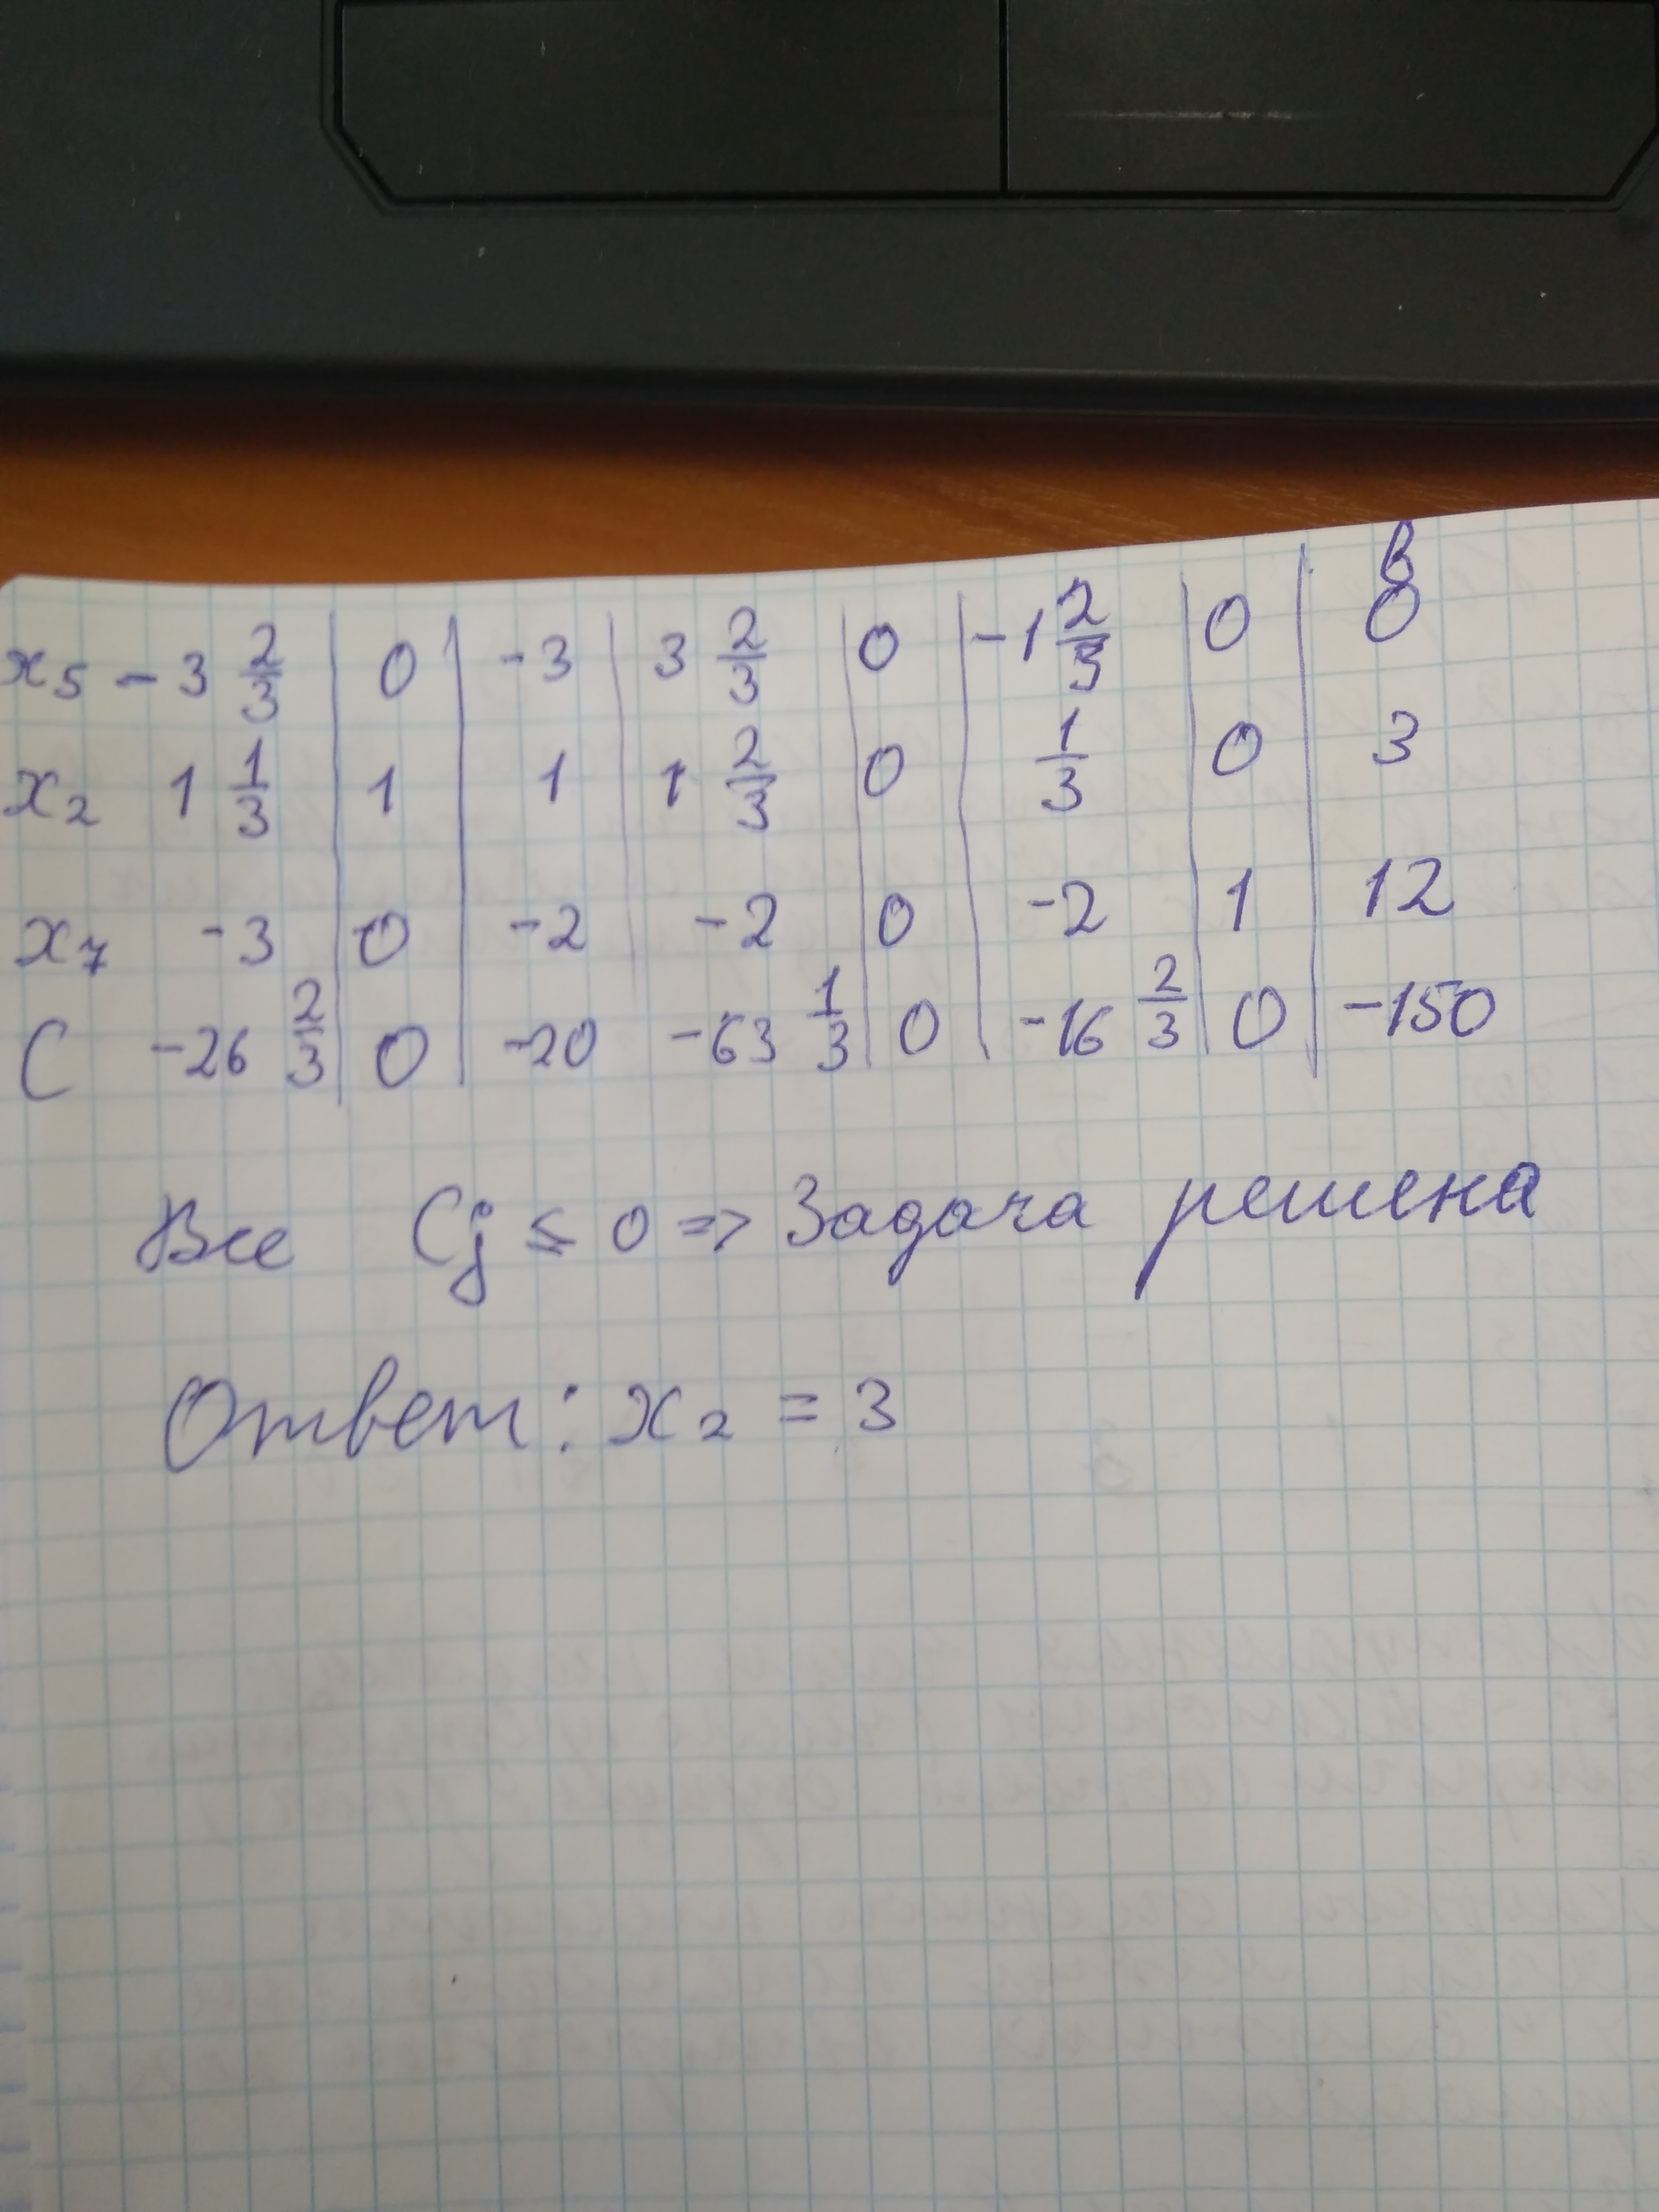 в
x₅ -3 2/3 | 0 | -3 | 3 2/3 | 0 | -1 2/3 | 0 | 0
x₂ 1 1/3 | 1 | 1 | 1 2/3 | 0 | 1/3 | 0 | 3
x₇ -3 | 0 | -2 | -2 | 0 | -2 | 1 | 12
C -26 2/3 | 0 | -20 | -63 1/3 | 0 | -16 2/3 | 0 | -150
Все Cj ≤ 0 => Задача решена
Ответ: x₂ = 3